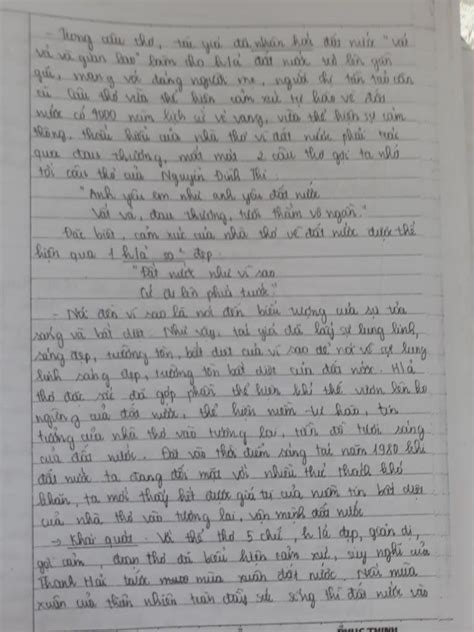 - Trong câu thơ, tác giả đã nhân hoá đất nước "vất
vả và gian lao" làm cho h/ả đất nước trở lên gần
gũi, mang vóc dáng người mẹ, người chị tần tảo cần
cù. Câu thơ vừa thể hiện cảm xúc tự hào về đất
nước có 4000 năm lịch sử vẻ vang, vừa thể hiện sự cảm
thông, thấu hiểu của nhà thơ vì đất nước phải trải
qua đau thương, mất mát. 2 câu thơ gợi ta nhớ
tới câu thơ của Nguyễn Đình Thi:
"Anh yêu em như anh yêu đất nước
Vất vả, đau thương, tươi thắm vô ngần."
Đặc biệt, cảm xúc của nhà thơ về đất nước được thể
hiện qua 1 h/ả so² đẹp:
"Đất nước như vì sao
Cứ đi lên phía trước."
- Nói đến vì sao là nói đến biểu tượng của sự tỏa
sáng và bất diệt. Như vậy, tác giả đã lấy sự lung linh,
sáng đẹp, trường tồn, bất diệt của vì sao để nói về sự lung
linh sáng đẹp, trường tồn bất diệt của đất nước. H/ả
thơ đặc sắc đã góp phần thể hiện khí thế vươn lên ko
ngừng của đất nước, thể hiện niềm tự hào, tin
tưởng của nhà thơ vào tương lai, tiền đồ tươi sáng
của đất nước. Đặt vào thời điểm sáng tác năm 1980 khi
đất nước ta đang đối mặt với nhiều thử thách khó
khăn, ta mới thấy hết được giá trị của niềm tin bất diệt
của nhà thơ vào tương lai, vận mệnh đất nước.
→ Khái quát: Với thể thơ 5 chữ, h/ả đẹp, giản dị,
gợi cảm, đoạn thơ đã biểu hiện cảm xúc, suy nghĩ của
Thanh Hải trước mùa xuân đất nước. Nếu mùa
xuân của thiên nhiên tràn đầy sức sống thì đất nước vào